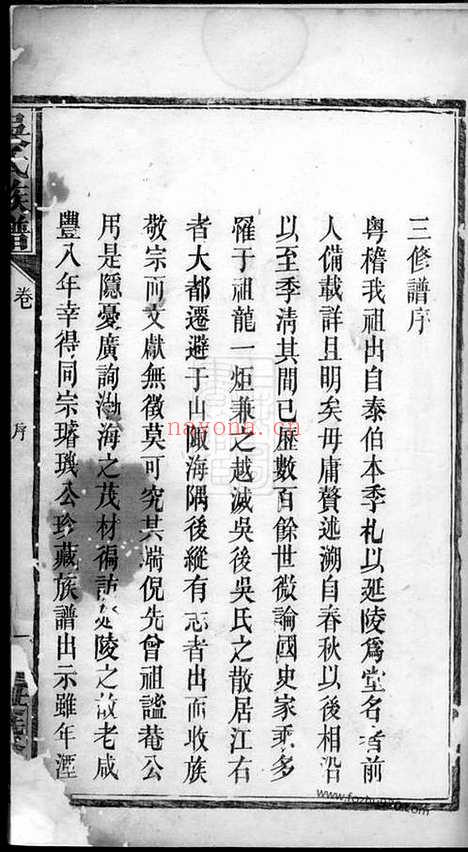 三修譜序
粵稽我祖出自泰伯本季札以延陵爲堂名者前
人備載詳且明矣毋庸贅述溯自春秋以後相沿
以至季清其間已歷數百餘世微論國史家乘多
罹于祖龍一炬兼之越滅吳後吳氏之散居江右
者大都遷避于山陬海隅後縱有志者出而收族
敬宗而文獻無徵莫可究其端倪先曾祖謐菴公
用是隱憂廣詢渤海之茂材徧訪延陵之故老咸
豐八年幸得同宗璿璣公珍藏族譜出示雖年湮
吳氏族譜
卷
序
一
nayona.cn